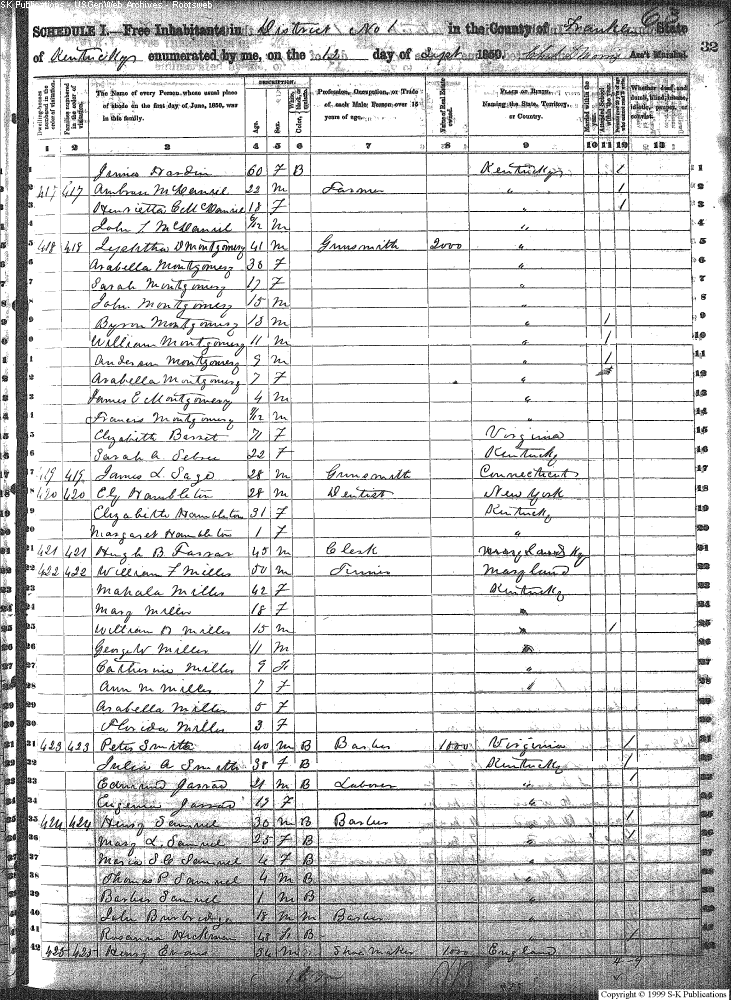 SK Publications - USGenWeb Archives - Rootsweb
SCHEDULE I.—Free Inhabitants in District No 1 in the County of Franklin State
of Kentucky enumerated by me, on the 12 day of Sept 1850. Ass't Marshal. 32
DESCRIPTION.
Dwelling-houses numbered in the order of visitation.
Families numbered in the order of visitation.
The Name of every Person whose usual place of abode on the first day of June, 1850, was in this family.
Age.
Sex.
Color, White, black, or mulatto.
Profession, Occupation, or Trade of each Male Person over 15 years of age.
Value of Real Estate owned.
PLACE OF BIRTH. Naming the State, Territory, or Country.
Married within the year.
Whether deaf and dumb, blind, insane, idiotic, pauper, or convict.
1 2 3 4 5 6 7 8 9 10 11 12 13
1 Hardin 60 F B Kentucky / 1
2 417 417 McDaniel 22 M Farmer " / 2
Henrietta C McDaniel 18 F " / 3
John McDaniel /12 M " 4
5 418 418 Montgomery 41 M Gunsmith 2000 " 5
6 Arabella Montgomery 36 F " 6
7 Sarah Montgomery 17 F " 7
John Montgomery 15 M " 8
9 Byron Montgomery 13 M " / 9
William Montgomery 11 M " / 10
Anderson Montgomery 9 M " / 11
2 Arabella Montgomery 7 F " 12
James E Montgomery 4 M " 13
Francis Montgomery /12 M " 14
Elizabeth 71 F Virginia 15
Sarah A 22 F Kentucky 16
419 419 James L Sage 28 M Gunsmith Connecticut 17
420 420 Ely Hambleton 28 M Dentist New York 18
Elizabeth Hambleton 31 F Kentucky 19
Margaret Hambleton 1 F " 20
21 421 421 Hugh B Farrar 45 M Clerk Maryland Ky 21
22 422 422 William F Miller 50 M Maryland 22
Mahala Miller 42 F Kentucky 23
Mary Miller 18 F " 24
25 William Miller 15 M " / 25
26 George W Miller 11 M " 26
27 Catherine Miller 9 F " 27
28 Ann M Miller 7 F " 28
29 Arabella Miller 5 F " 29
30 Florida Miller 3 F 30
423 423 Peter Smith 40 M B Barber 1000 Virginia /
32 Julia A Smith 38 F B Kentucky /
33 Edmund 21 M B Laborer " /
34 Eugenia 17 F "
35 424 424 Henry Samuel 30 M B Barber " /
36 Mary L. Samuel 25 F B " /
37 Samuel 4 F B "
38 Thomas P Samuel 4 M B "
39 Samuel 1 M B "
40 John 18 M M Barber "
41 Rosanna Hickman 43 F B " /
42 425 425 Henry Evans 54 M Shoe Maker 1000 England
Copyright © 1999 S-K Publications